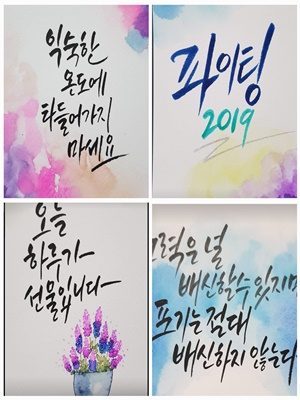 익숙한
온도에
타들어가지
마세요
파이팅
2019
오늘
하루가
선물입니다
노력은 널
배신할 수 있지만
포기는 절대
배신하지 않는다